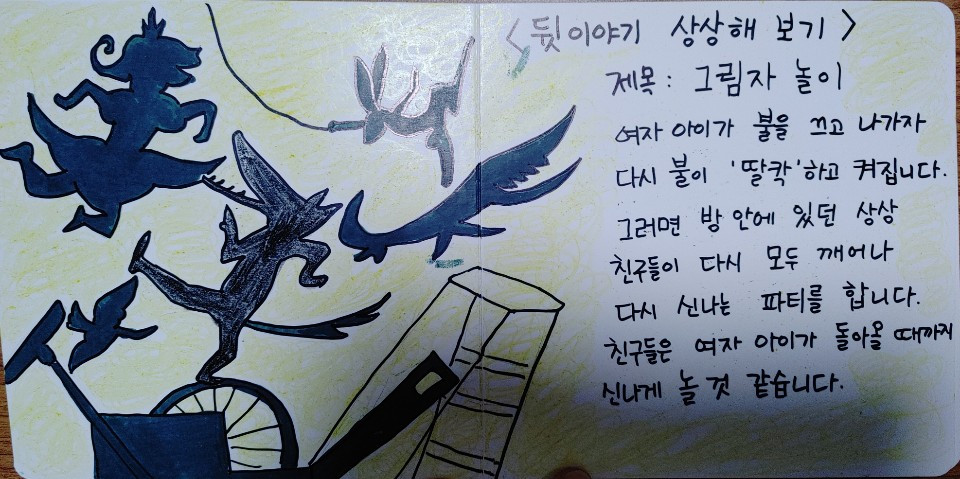 <뒷이야기 상상해 보기>
제목: 그림자 놀이
여자 아이가 불을 끄고 나가자
다시 불이 '딸칵'하고 켜집니다.
그러면 방 안에 있던 상상
친구들이 다시 모두 깨어나
다시 신나는 파티를 합니다.
친구들은 여자 아이가 돌아올 때까지
신나게 놀 것 같습니다.